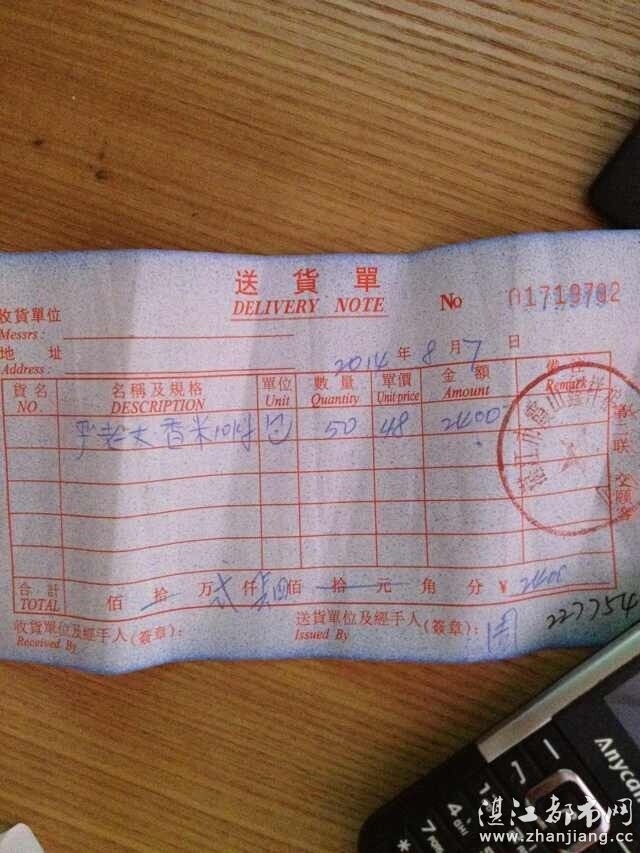 送貨單
DELIVERY NOTE No 01719702
收貨單位
Messrs:
地址
Address:
2014年8月7日
貨名 名稱及規格 單位 數量 單價 金額 備注
NO. DESCRIPTION Unit Quantity Unit price Amount Remark
香米10kg 包 50 48 2400
第二联 交顾客
合計 佰拾万贰仟肆佰拾元角分¥2400
TOTAL
收貨單位及經手人(簽章): 送貨單位及經手人(簽章): 周 227754
Received By Issued By
Anycall
湛江都市网
www.zhanjiang.cc